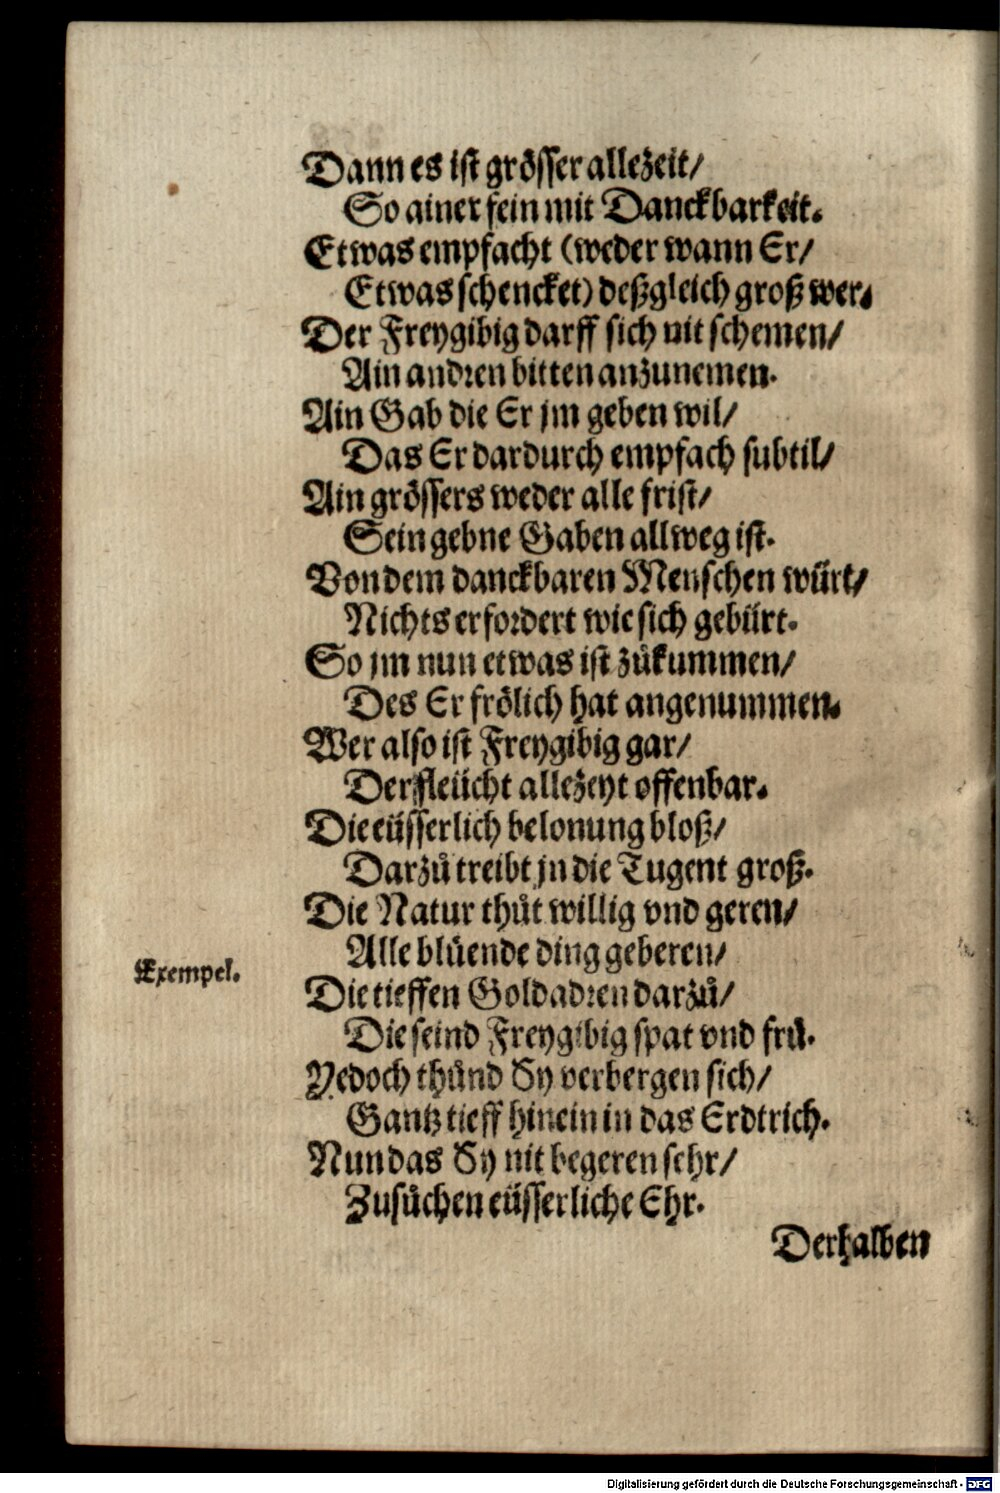 Dann es ist grösser allezeit/
So ainer fein mit Danckbarkeit.
Etwas empfacht (weder wann Er/
Etwas schencket) deßgleich groß wer.
Der Freygibig darff sich nit schemen/
Ain andren bitten anzunemen.
Ain Gab die Er jm geben wil/
Das Er dardurch empfach subtil/
Ain grössers weder alle frist/
Sein gebne Gaben allweg ist.
Von dem danckbaren Menschen würt/
Nichts erfordert wie sich gebürt.
So jm nun etwas ist zůkummen/
Des Er frölich hat angenummen.
Wer also ist Freygibig gar/
Der fleücht allezeyt offenbar.
Die eüsserlich belonung bloß/
Darzů treibt jn die Tugent groß.
Die Natur thůt willig vnd geren/
Alle blüende ding geberen/
Exempel.
Die tieffen Goldadren darzů/
Die seind Freygibig spat vnd frü.
Yedoch thůnd Sy verbergen sich/
Gantz tieff hinein in das Erdtrich.
Nun das Sy nit begeren sehr/
Zusůchen eüsserliche Ehr.
Derhalben
Digitalisierung gefördert durch die Deutsche Forschungsgemeinschaft - DFG